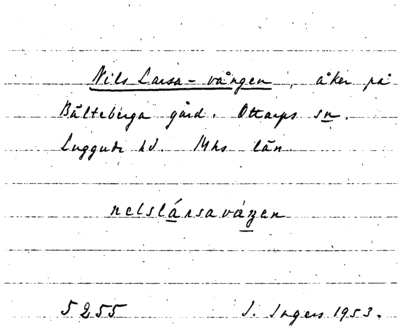 Nils Larsa-vången, åker på
Bälteberga gård. Ottarps sn.
Luggude hd. Mhs län
nelslársaváŋen
5255 I. Ingers 1953.